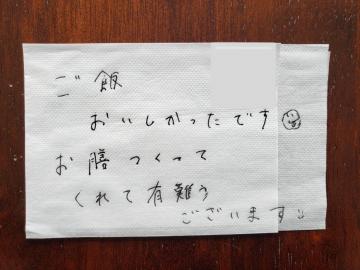 ご飯
おいしかったです
お膳つくって
くれて有難う
ございます